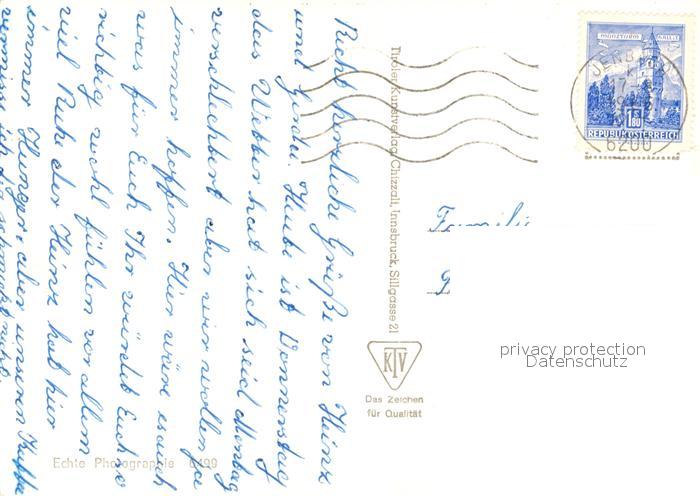 Recht herzliche Grüße von Heinz
und Gerda. Heute ist Donnerstag
das Wetter hat sich seid Montag
verschlechtert aber wir wollen ja
immer hoffen. Hier wäre es auch
was für Euch Ihr würdet Euch so
richtig wohl fühlen vor allem
viel Ruhe der Heinz hat hier
immer Hunger, aber unseren Kaffee
vermisse ich schmeckt nicht.
Echte Photographie 6499
Tiroler Kunstverlag Chizzali, Innsbruck, Sillgasse 21
KTV
Das Zeichen
für Qualität
MÜNZTURM
HALL
S 1.80
REPUBLIK ÖSTERREICH
JENBACH
6200
Familie
privacy protection
Datenschutz